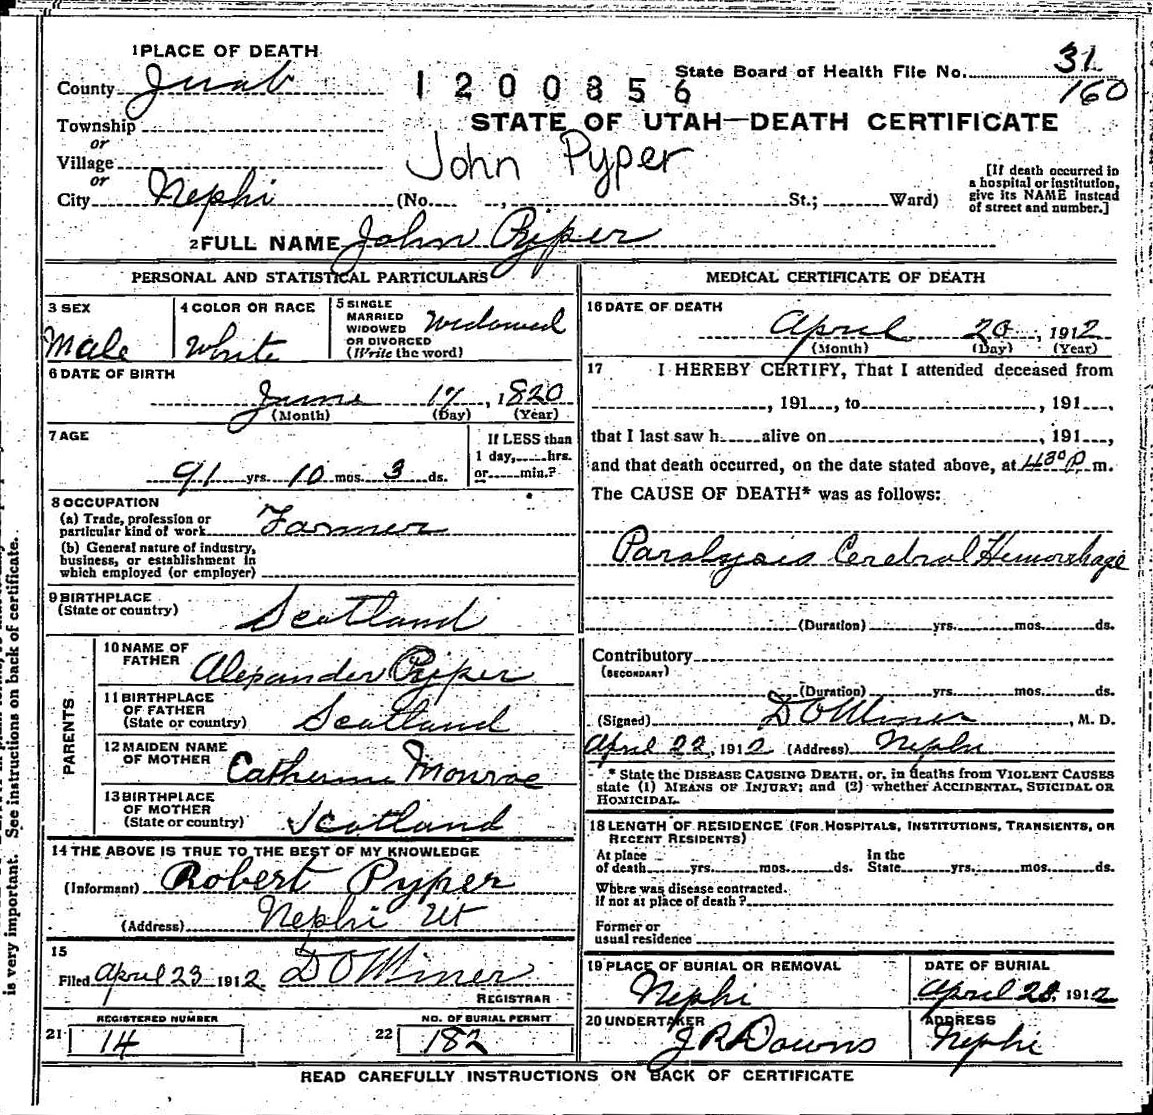 1 PLACE OF DEATH
County Juab
1200856
State Board of Health File No. 31
160
Township
or
STATE OF UTAH—DEATH CERTIFICATE
Village
John Pyper
or
City Nephi (No. , St.; Ward)
[If death occurred in
a hospital or institution,
give its NAME instead
of street and number.]
2 FULL NAME John Pyper
PERSONAL AND STATISTICAL PARTICULARS
3 SEX
Male
4 COLOR OR RACE
White
5 SINGLE
MARRIED
WIDOWED
OR DIVORCED
(Write the word)
Widowed
6 DATE OF BIRTH
June 17, 1820
(Month) (Day) (Year)
7 AGE
91 yrs. 10 mos. 3 ds.
If LESS than
1 day, hrs.
or min.?
8 OCCUPATION
(a) Trade, profession or
particular kind of work Farmer
(b) General nature of industry,
business, or establishment in
which employed (or employer)
9 BIRTHPLACE
(State or country) Scotland
PARENTS
10 NAME OF
FATHER Alexander Pyper
11 BIRTHPLACE
OF FATHER
(State or country) Scotland
12 MAIDEN NAME
OF MOTHER Catherine Monroe
13 BIRTHPLACE
OF MOTHER
(State or country) Scotland
14 THE ABOVE IS TRUE TO THE BEST OF MY KNOWLEDGE
(Informant) Robert Pyper
(Address) Nephi Ut
15
Filed April 23 1912 D O Miner
REGISTRAR
REGISTERED NUMBER
21 14
NO. OF BURIAL PERMIT
22 182
MEDICAL CERTIFICATE OF DEATH
16 DATE OF DEATH
April 20, 1912
(Month) (Day) (Year)
17 I HEREBY CERTIFY, That I attended deceased from
, 191 , to , 191 ,
that I last saw h alive on , 191 ,
and that death occurred, on the date stated above, at 430 P. m.
The CAUSE OF DEATH* was as follows:
Paralysis Cerebral Hemorrhage
(Duration) yrs. mos. ds.
Contributory
(SECONDARY)
(Duration) yrs. mos. ds.
(Signed) D O Miner, M. D.
April 22, 1912 (Address) Nephi
* State the DISEASE CAUSING DEATH, or, in deaths from VIOLENT CAUSES
state (1) MEANS OF INJURY; and (2) whether ACCIDENTAL, SUICIDAL OR
HOMICIDAL.
18 LENGTH OF RESIDENCE (FOR HOSPITALS, INSTITUTIONS, TRANSIENTS, OR
RECENT RESIDENTS)
At place
of death yrs. mos. ds.
In the
State yrs. mos. ds.
Where was disease contracted.
If not at place of death?
Former or
usual residence
19 PLACE OF BURIAL OR REMOVAL
Nephi
DATE OF BURIAL
April 23, 1912
20 UNDERTAKER
J R Downs
ADDRESS
Nephi
READ CAREFULLY INSTRUCTIONS ON BACK OF CERTIFICATE
is very important. See instructions on back of certificate.